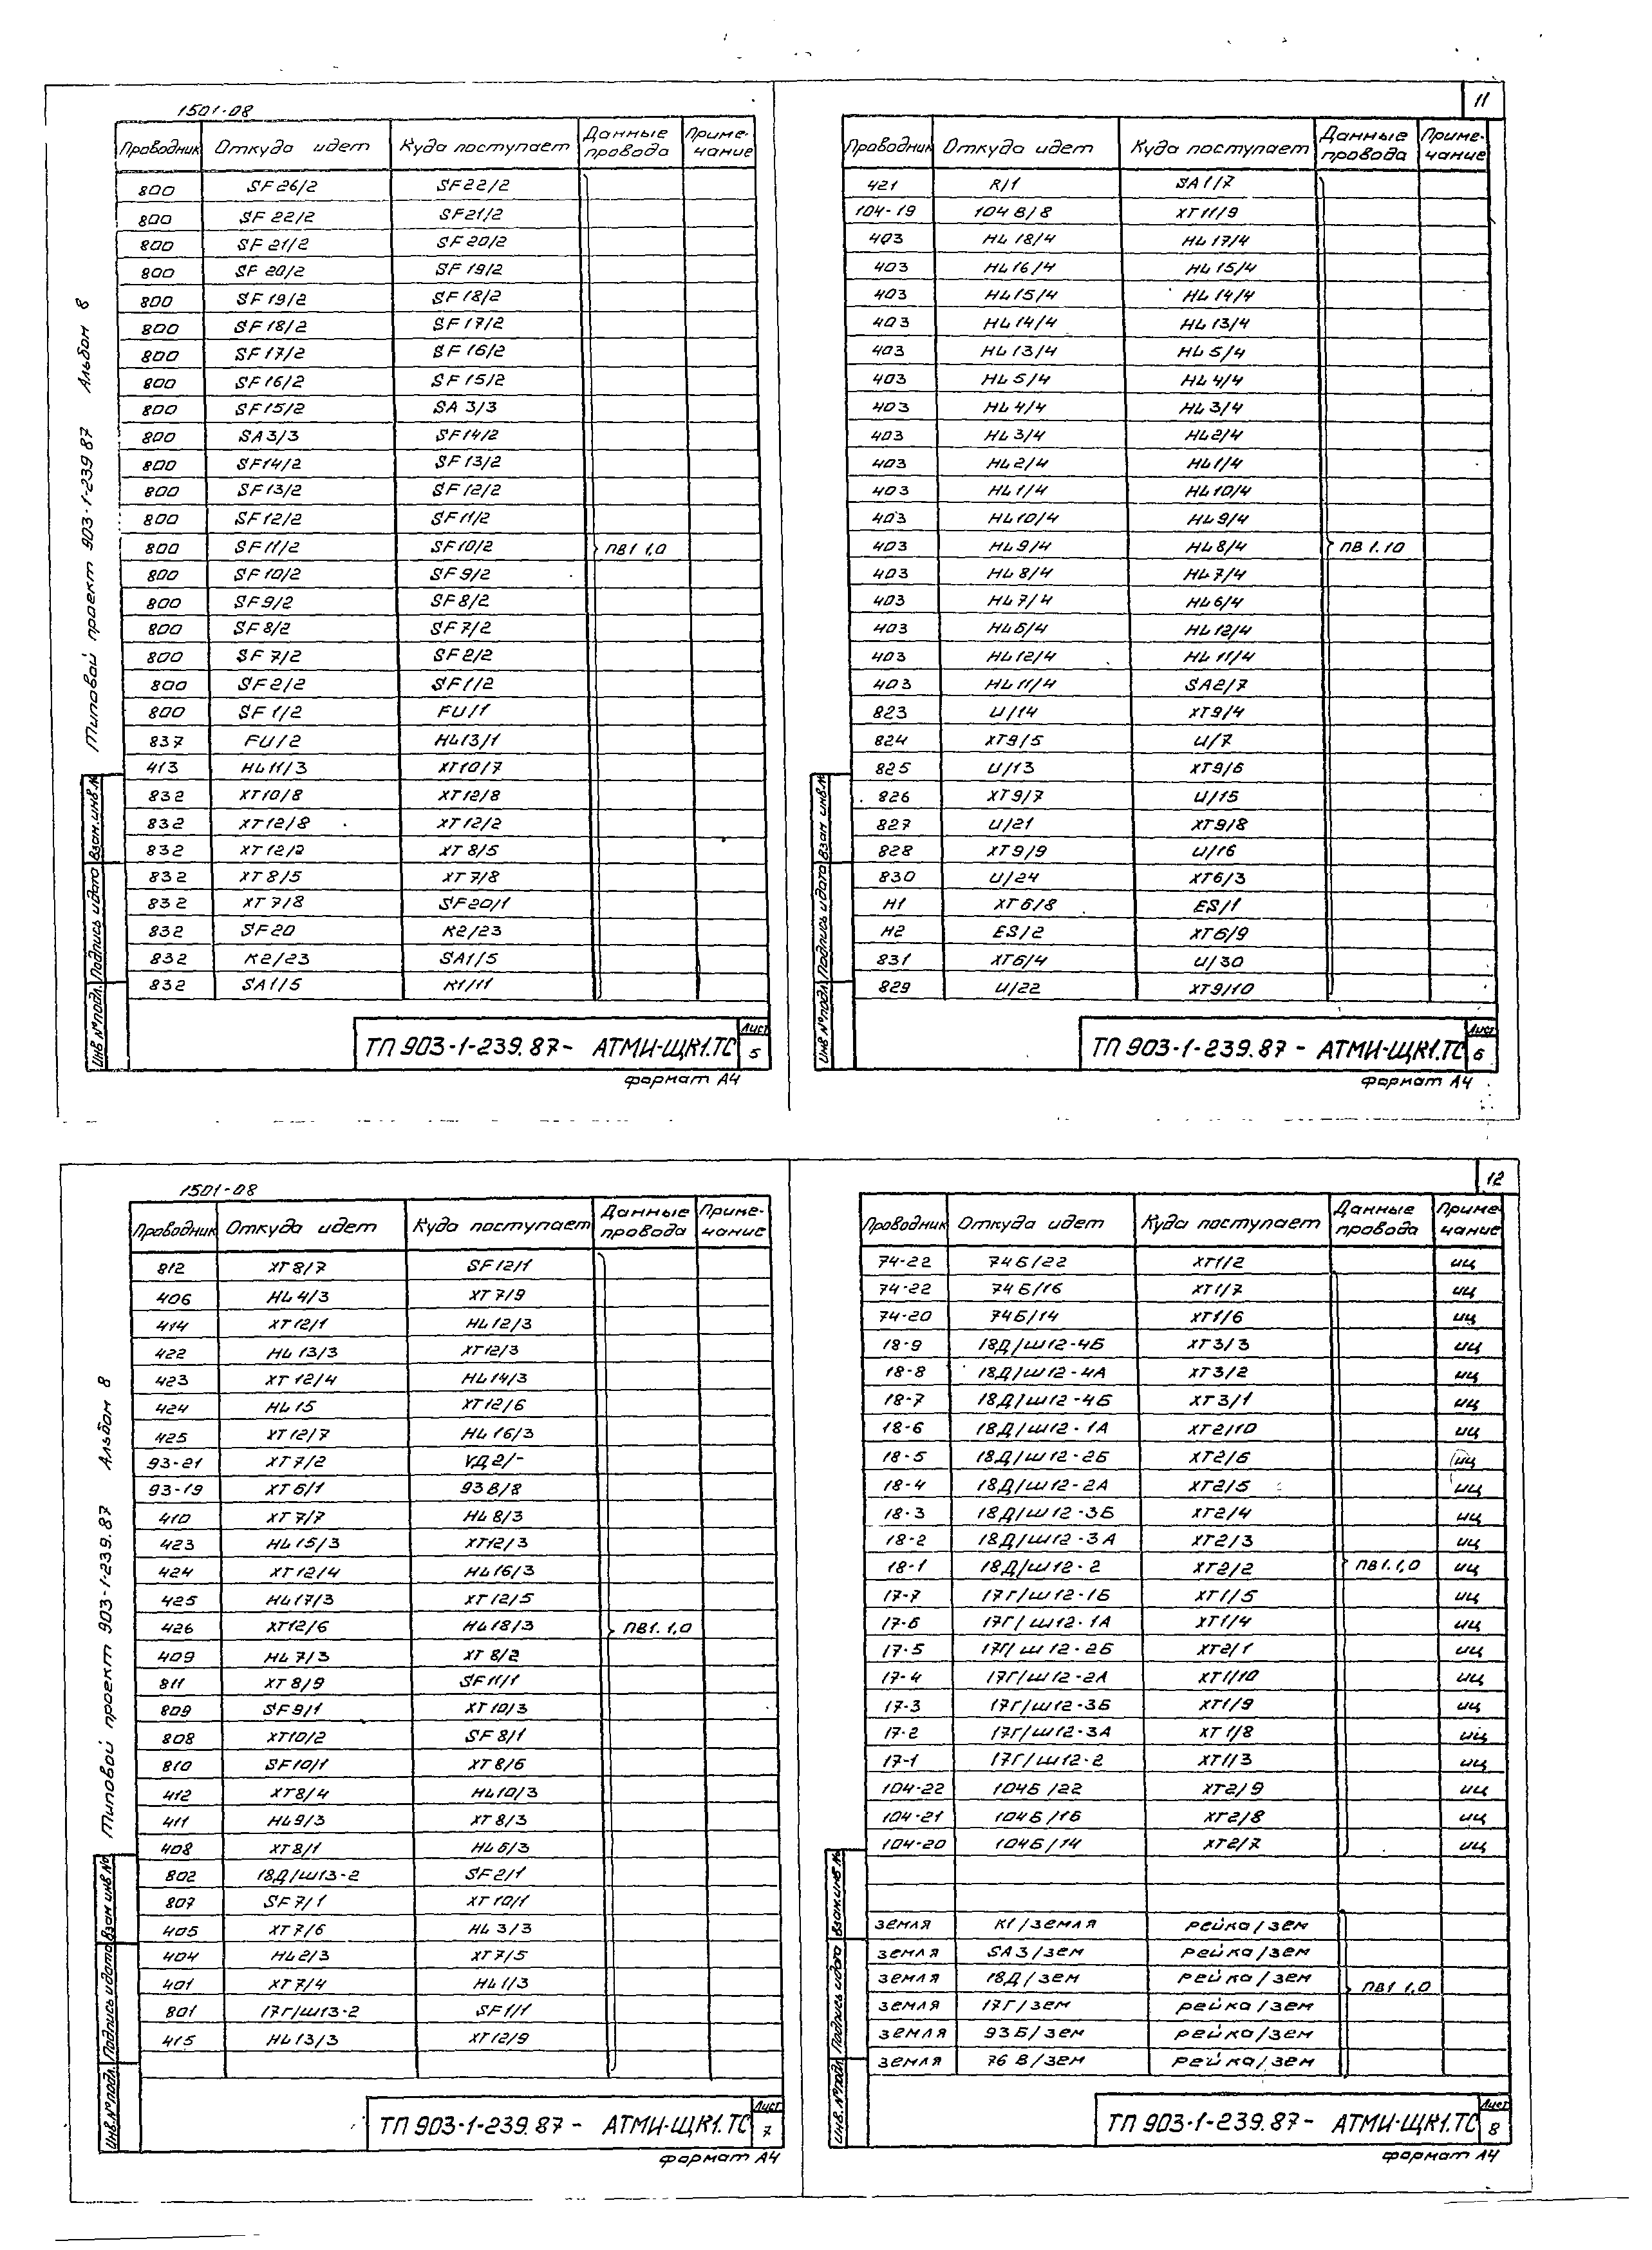 11
1501-08
Типовой проект 903-1-239 87 Альбом 8
Проводник Откуда идет Куда поступает Данные провода Примечание
800 SF26/2 SF22/2
800 SF22/2 SF21/2
800 SF21/2 SF20/2
800 SF20/2 SF19/2
800 SF19/2 SF18/2
800 SF18/2 SF17/2
800 SF17/2 SF16/2
800 SF16/2 SF15/2
800 SF15/2 SA3/3
800 SA3/3 SF14/2
800 SF14/2 SF13/2
800 SF13/2 SF12/2
800 SF12/2 SF11/2
800 SF11/2 SF10/2 ПВ1 1,0
800 SF10/2 SF9/2
800 SF9/2 SF8/2
800 SF8/2 SF7/2
800 SF7/2 SF2/2
800 SF2/2 SF1/2
800 SF1/2 FU/1
837 FU/2 HL13/1
413 HL11/3 XT10/7
832 XT10/8 XT12/8
832 XT12/8 XT12/2
832 XT12/2 XT8/5
832 XT8/5 XT7/8
832 XT7/8 SF20/1
832 SF20 K2/23
832 K2/23 SA1/5
832 SA1/5 K1/11
Инв №подл. Подпись и дата Взам.инв.№
ТП 903-1-239.87 - АТМИ-ЩК1.ТС Лист 5
формат А4
Проводник Откуда идет Куда поступает Данные провода Примечание
421 R/1 SA1/7
104-19 104В/8 XT11/9
403 HL18/4 HL17/4
403 HL16/4 HL15/4
403 HL15/4 HL14/4
403 HL14/4 HL13/4
403 HL13/4 HL5/4
403 HL5/4 HL4/4
403 HL4/4 HL3/4
403 HL3/4 HL2/4
403 HL2/4 HL1/4
403 HL1/4 HL10/4
403 HL10/4 HL9/4
403 HL9/4 HL8/4 ПВ 1.10
403 HL8/4 HL7/4
403 HL7/4 HL6/4
403 HL6/4 HL12/4
403 HL12/4 HL11/4
403 HL11/4 SA2/7
823 U/14 XT9/4
824 XT9/5 U/7
825 U/13 XT9/6
826 XT9/7 U/15
827 U/21 XT9/8
828 XT9/9 U/16
830 U/24 XT6/3
H1 XT6/8 ES/1
H2 ES/2 XT6/9
831 XT6/4 U/30
829 U/22 XT9/10
Инв №подл. Подпись и дата Взам инв.№
ТП 903-1-239.87 - АТМИ-ЩК1.ТС Лист 6
формат А4
12
1501-08
Типовой проект 903-1-239.87 Альбом 8
Проводник Откуда идет Куда поступает Данные провода Примечание
812 XT8/7 SF12/1
406 HL4/3 XT7/9
414 XT12/1 HL12/3
422 HL13/3 XT12/3
423 XT12/4 HL14/3
424 HL15 XT12/6
425 XT12/7 HL16/3
93-21 XT7/2 VД2/-
93-19 XT6/1 93В/8
410 XT7/7 HL8/3
423 HL15/3 XT12/3
424 XT12/4 HL16/3
425 HL17/3 XT12/5
426 XT12/6 HL18/3 ПВ1. 1,0
409 HL7/3 XT8/2
811 XT8/9 SF11/1
809 SF9/1 XT10/3
808 XT10/2 SF8/1
810 SF10/1 XT8/6
412 XT8/4 HL10/3
411 HL9/3 XT8/3
408 XT8/1 HL6/3
802 18Д/ш13-2 SF2/1
807 SF7/1 XT10/1
405 XT7/6 HL3/3
404 HL2/3 XT7/5
401 XT7/4 HL1/3
801 17Г/ш13-2 SF1/1
415 HL13/3 XT12/9
Инв.№подл. Подпись и дата Взам инв.№
ТП 903-1-239.87 - АТМИ-ЩК1.ТС Лист 7
формат А4
Проводник Откуда идет Куда поступает Данные провода Примечание
74-22 74Б/22 XT1/2 иц
74-22 74Б/16 XT1/7 иц
74-20 74Б/14 XT1/6 иц
18-9 18Д/ш12-4Б XT3/3 иц
18-8 18Д/ш12-4А XT3/2 иц
18-7 18Д/ш12-4Б XT3/1 иц
18-6 18Д/ш12-1А XT2/10 иц
18-5 18Д/ш12-2Б XT2/6 иц
18-4 18Д/ш12-2А XT2/5 иц
18-3 18Д/ш12-3Б XT2/4 иц
18-2 18Д/ш12-3А XT2/3 иц
18-1 18Д/ш12-2 XT2/2 ПВ1.1,0 иц
17-7 17Г/ш12-1Б XT1/5 иц
17-6 17Г/ш12-1А XT1/4 иц
17-5 17Г/ш12-2Б XT2/1 иц
17-4 17Г/ш12-2А XT1/10 иц
17-3 17Г/ш12-3Б XT1/9 иц
17-2 17Г/ш12-3А XT1/8 иц
17-1 17Г/ш12-2 XT1/3 иц
104-22 104Б/22 XT2/9 иц
104-21 104Б/16 XT2/8 иц
104-20 104Б/14 XT2/7 иц
земля K1/земля рейка/зем
земля SA3/зем рейка/зем
земля 18Д/зем рейка/зем ПВ1 1,0
земля 17Г/зем рейка/зем
земля 93Б/зем рейка/зем
земля 76В/зем рейка/зем
Инв.№подл Подпись и дата Взам.инв.№
ТП 903-1-239.87 - АТМИ-ЩК1.ТС Лист 8
формат А4